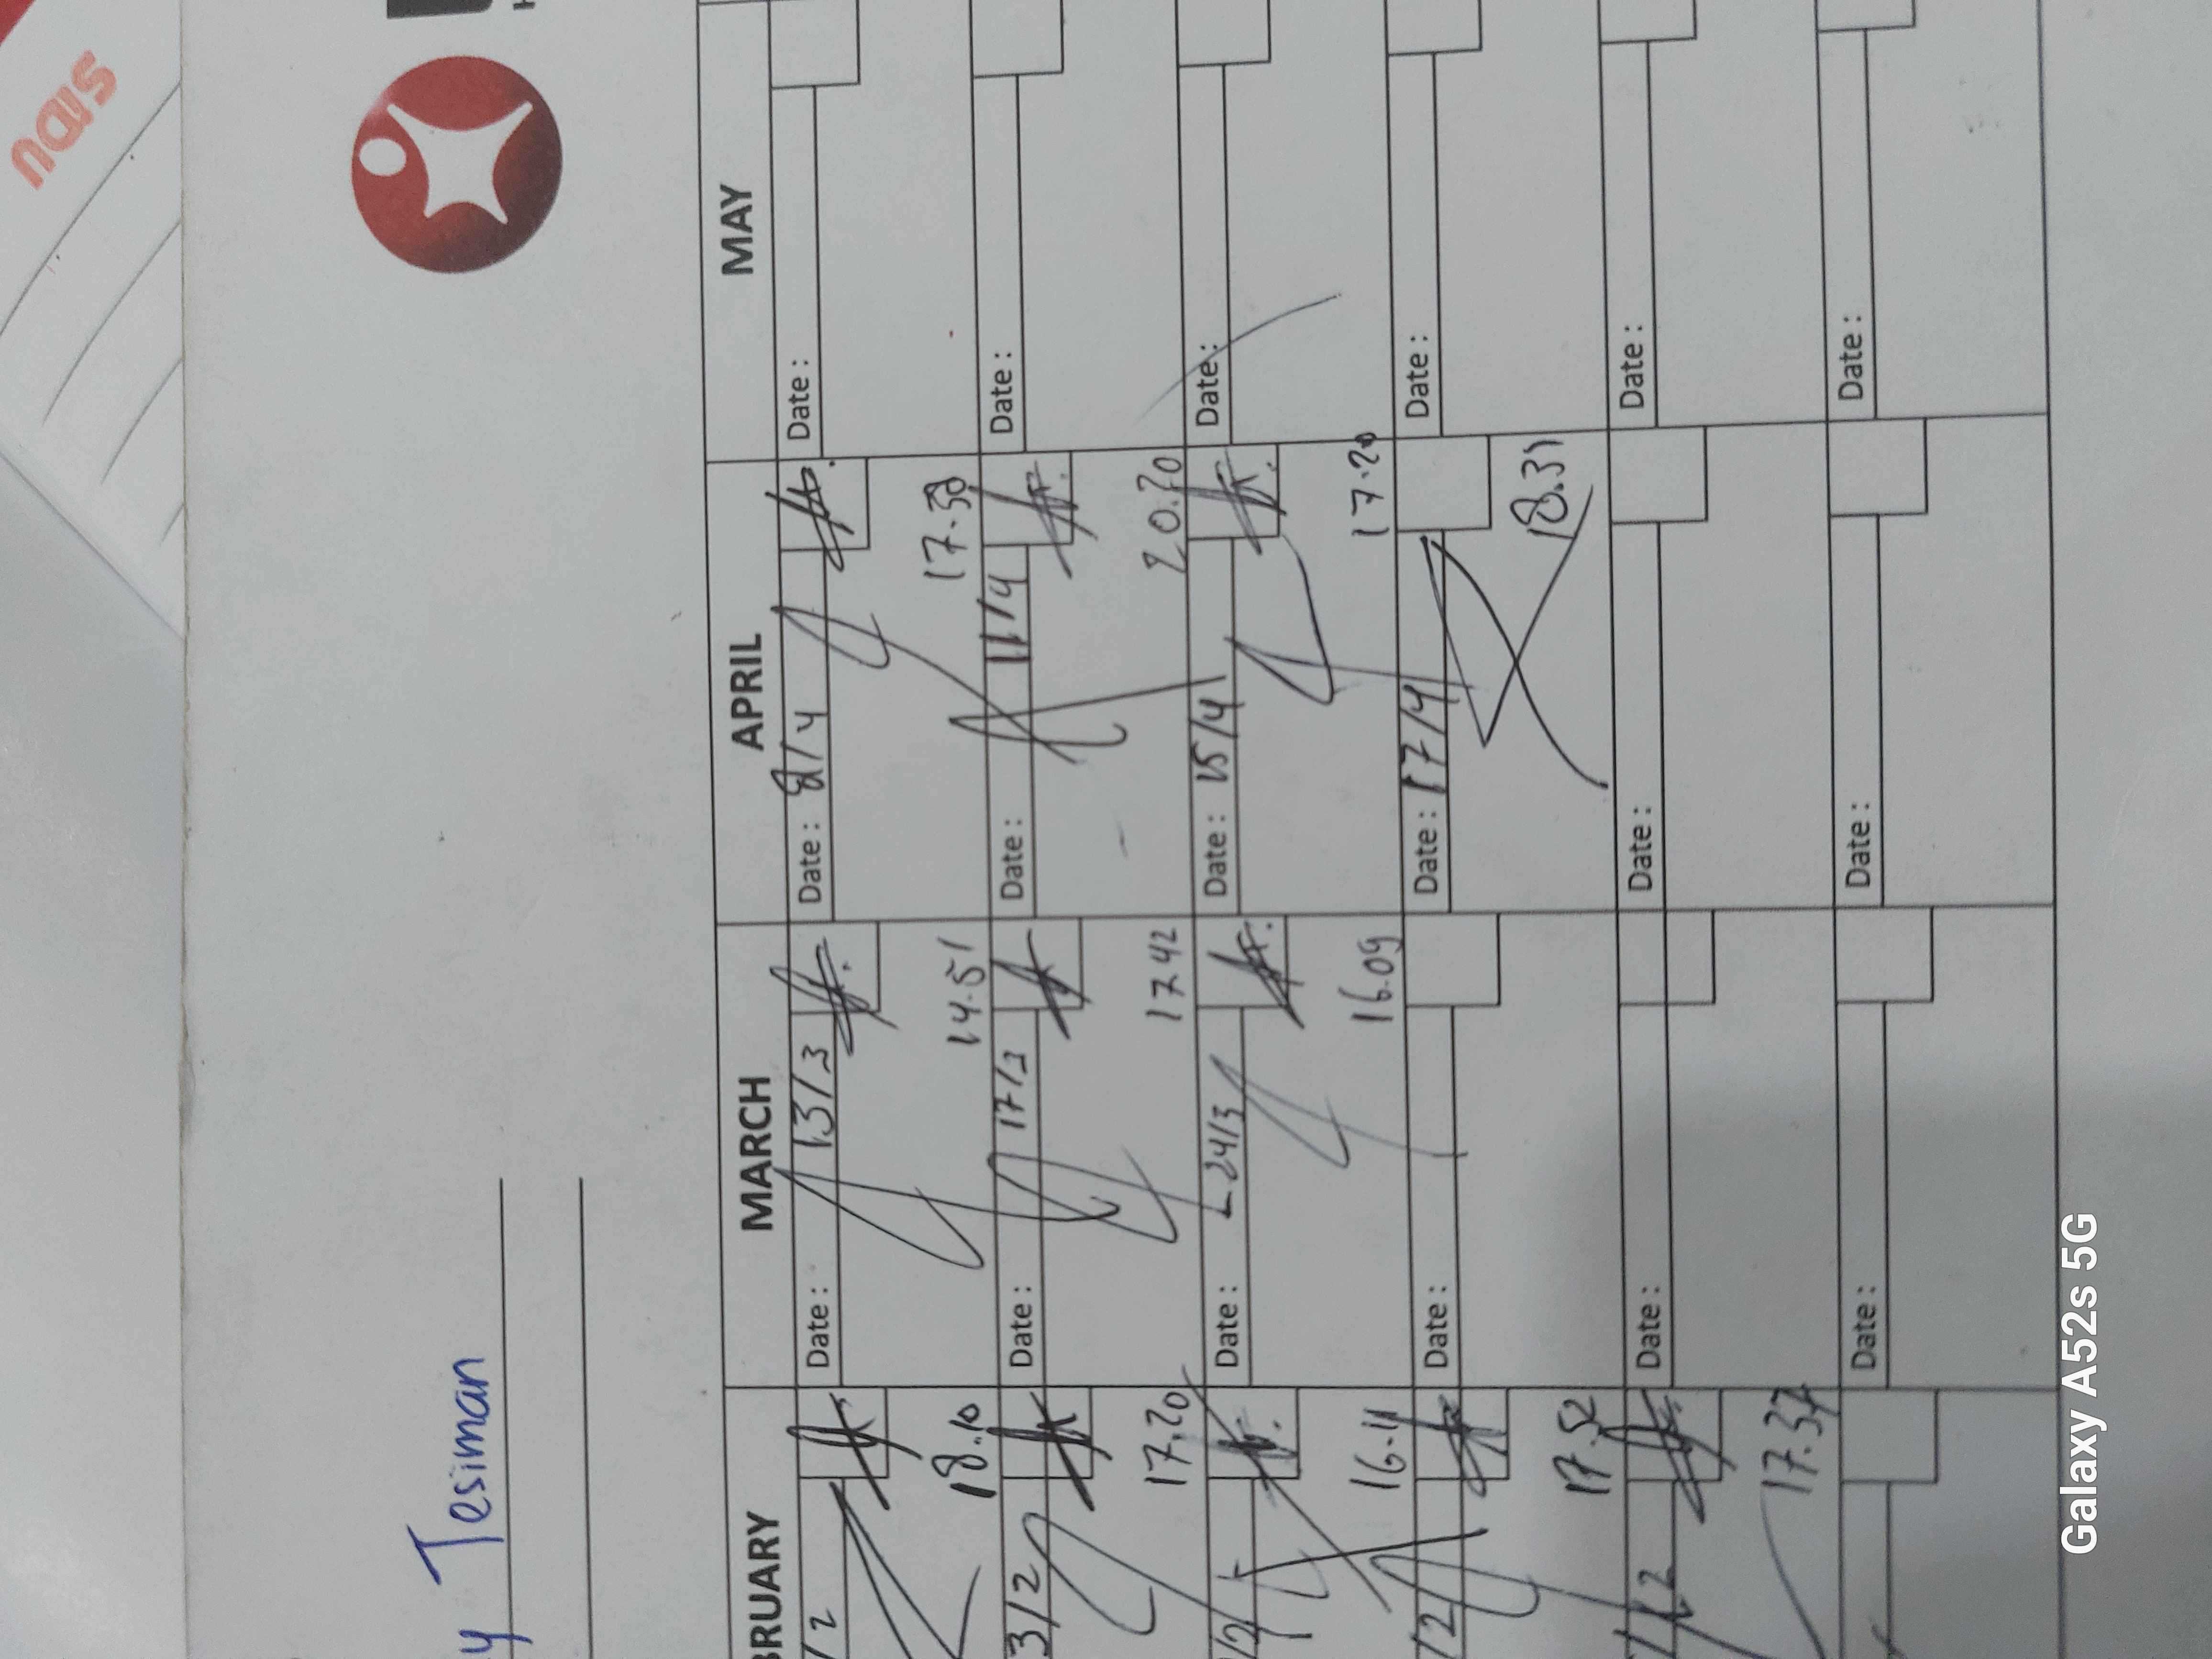 SIDU
Tesiman
BRUARY MARCH APRIL MAY
/2 Date: 13/3 Date: 8/4 Date:
18.10 14.51 17.58
3/2 Date: 17/3 Date: 11/4 Date:
17.20 17.42 20.20
/2 Date: 24/3 Date: 15/4 Date:
16.11 16.09 17.20
/2 Date: Date: 17/4 Date:
17.52 18.31
/2 Date: Date: Date:
17.37
Date: Date: Date:
Galaxy A52s 5G